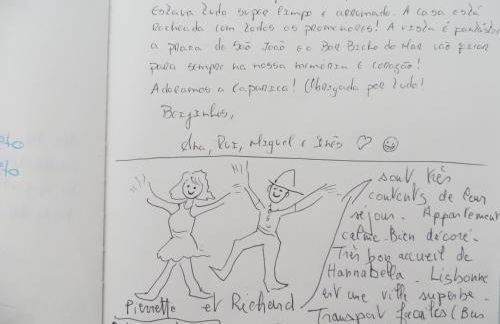 Estava tudo super limpo e arrumado. A casa está
recheada com todos os promenores! A vista é fantástica
a praia de São João e o Bar Bicho do Mar vão ficar
para sempre na nossa memória e coração!
Adoramos a Caparica! Obrigada por tudo!
Beijinhos,
Ana, Rui, Miguel e Inês
sont très
contents de leur
séjour. Appartement
calme. Bien décoré.
Très bon accueil de
Hannabella. Lisbonne
est une ville superbe.
Transport faciles (Bus
Pierrette et Richard